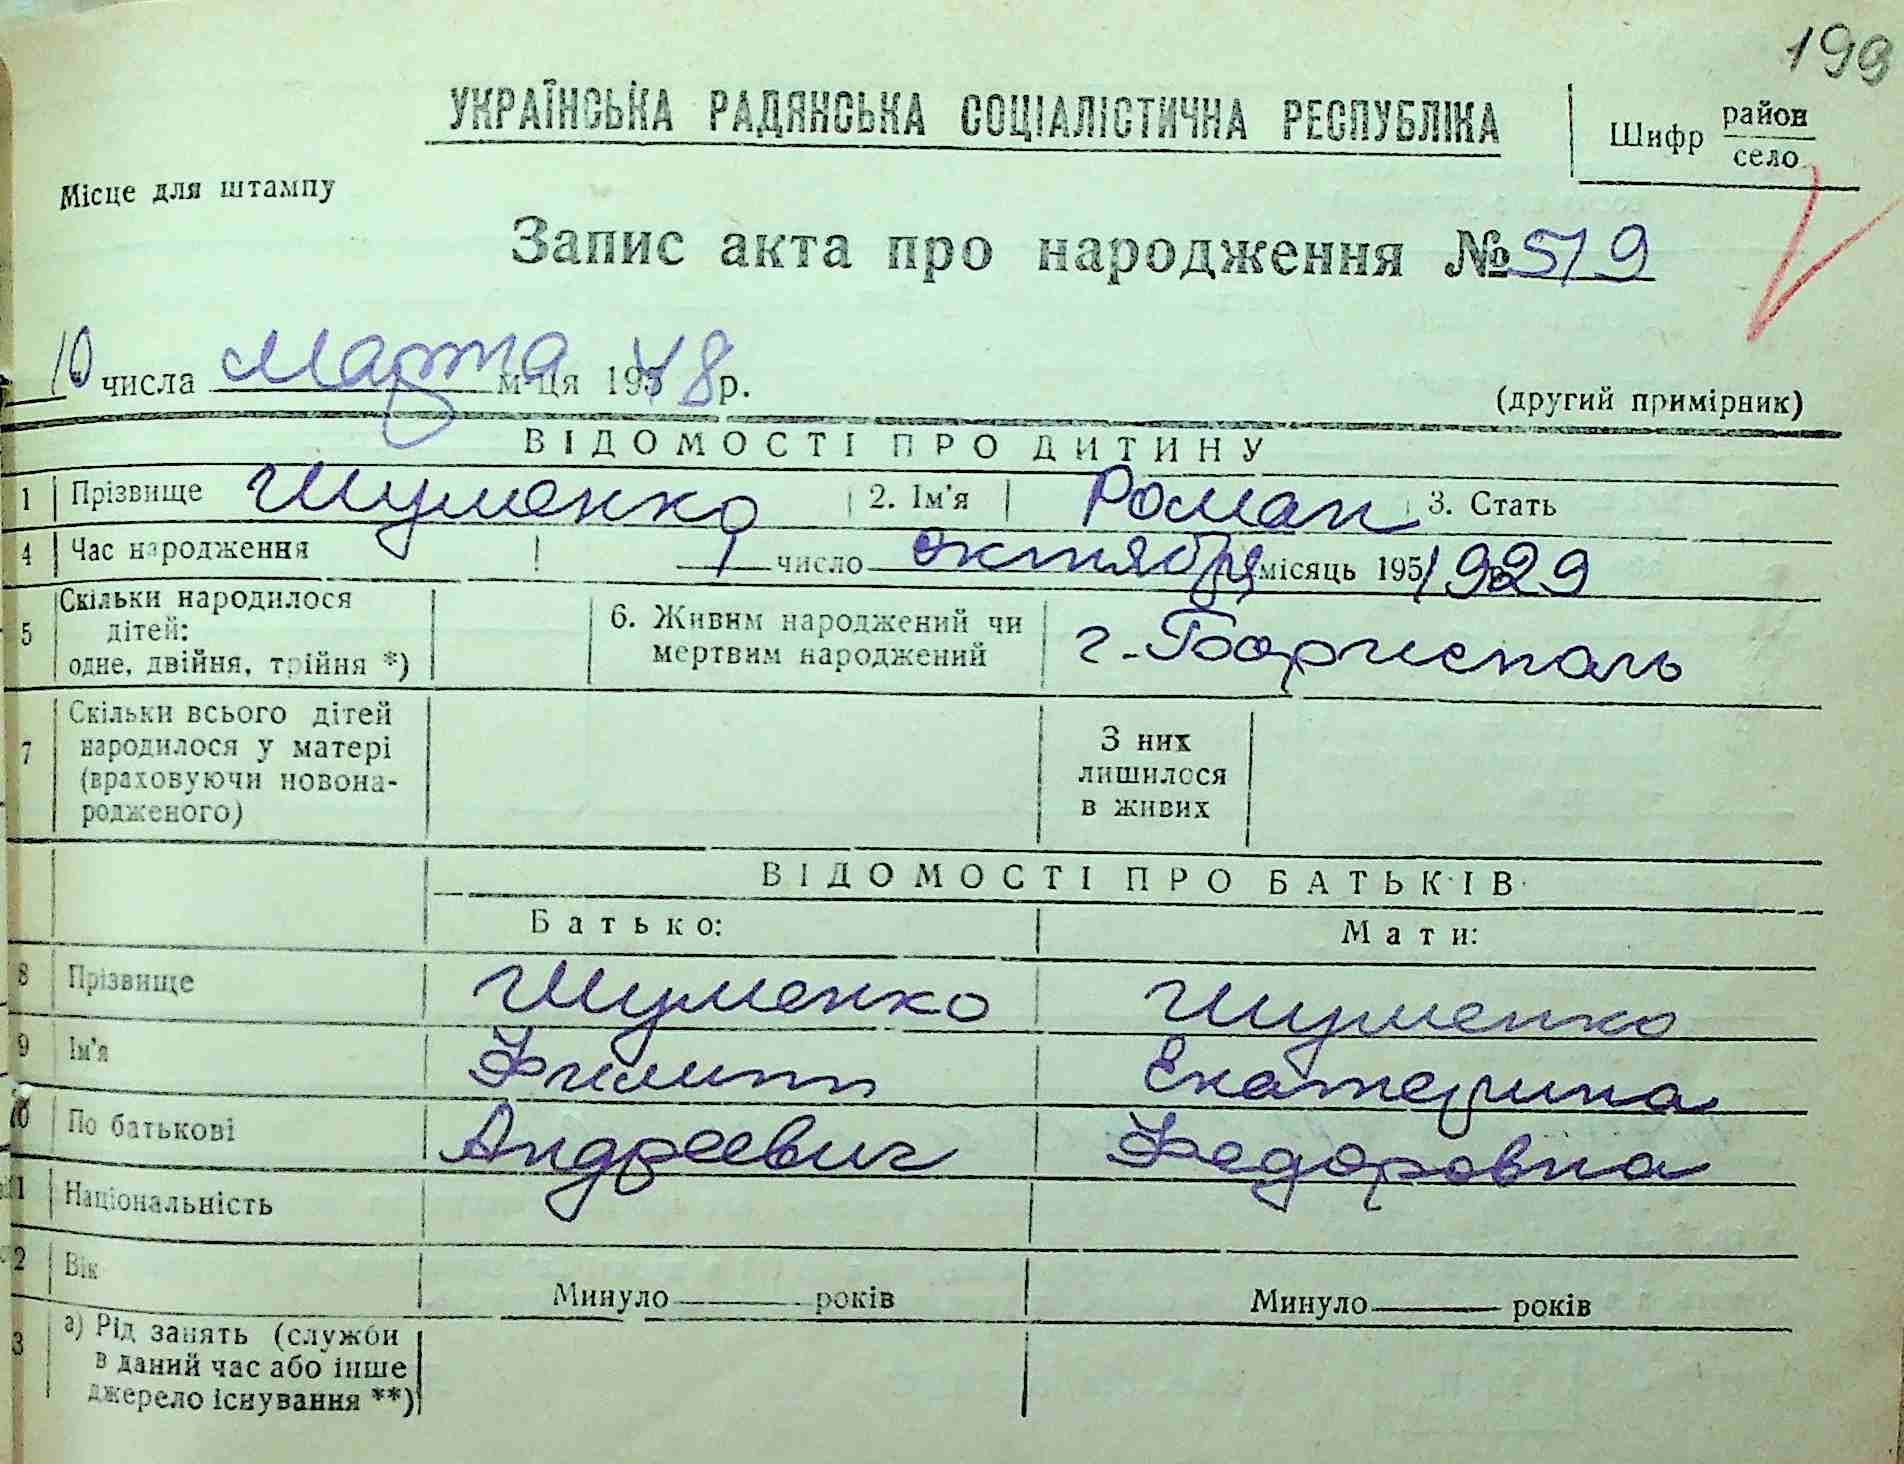 199
УКРАЇНСЬКА РАДЯНСЬКА СОЦІАЛІСТИЧНА РЕСПУБЛІКА
Шифр район
село
Місце для штампу
Запис акта про народження № 519
10 числа Марта м-ця 195 8 р.
(другий примірник)
ВІДОМОСТІ ПРО ДИТИНУ
1 Прізвище Шуменко 2. Ім'я Роман 3. Стать
4 Час народження 1 число октября місяць 195 1929
5 Скільки народилося дітей: одне, двійня, трійня *) 6. Живим народжений чи мертвим народжений г. Борисполь
7 Скільки всього дітей народилося у матері (враховуючи новонародженого) З них лишилося в живих
ВІДОМОСТІ ПРО БАТЬКІВ
Батько: Мати:
8 Прізвище Шуменко Шуменко
9 Ім'я Филипп Екатерина
10 По батькові Андреевич Федоровна
11 Національність
2 Вік Минуло років Минуло років
3 а) Рід занять (служби
в даний час або інше
джерело існування **)